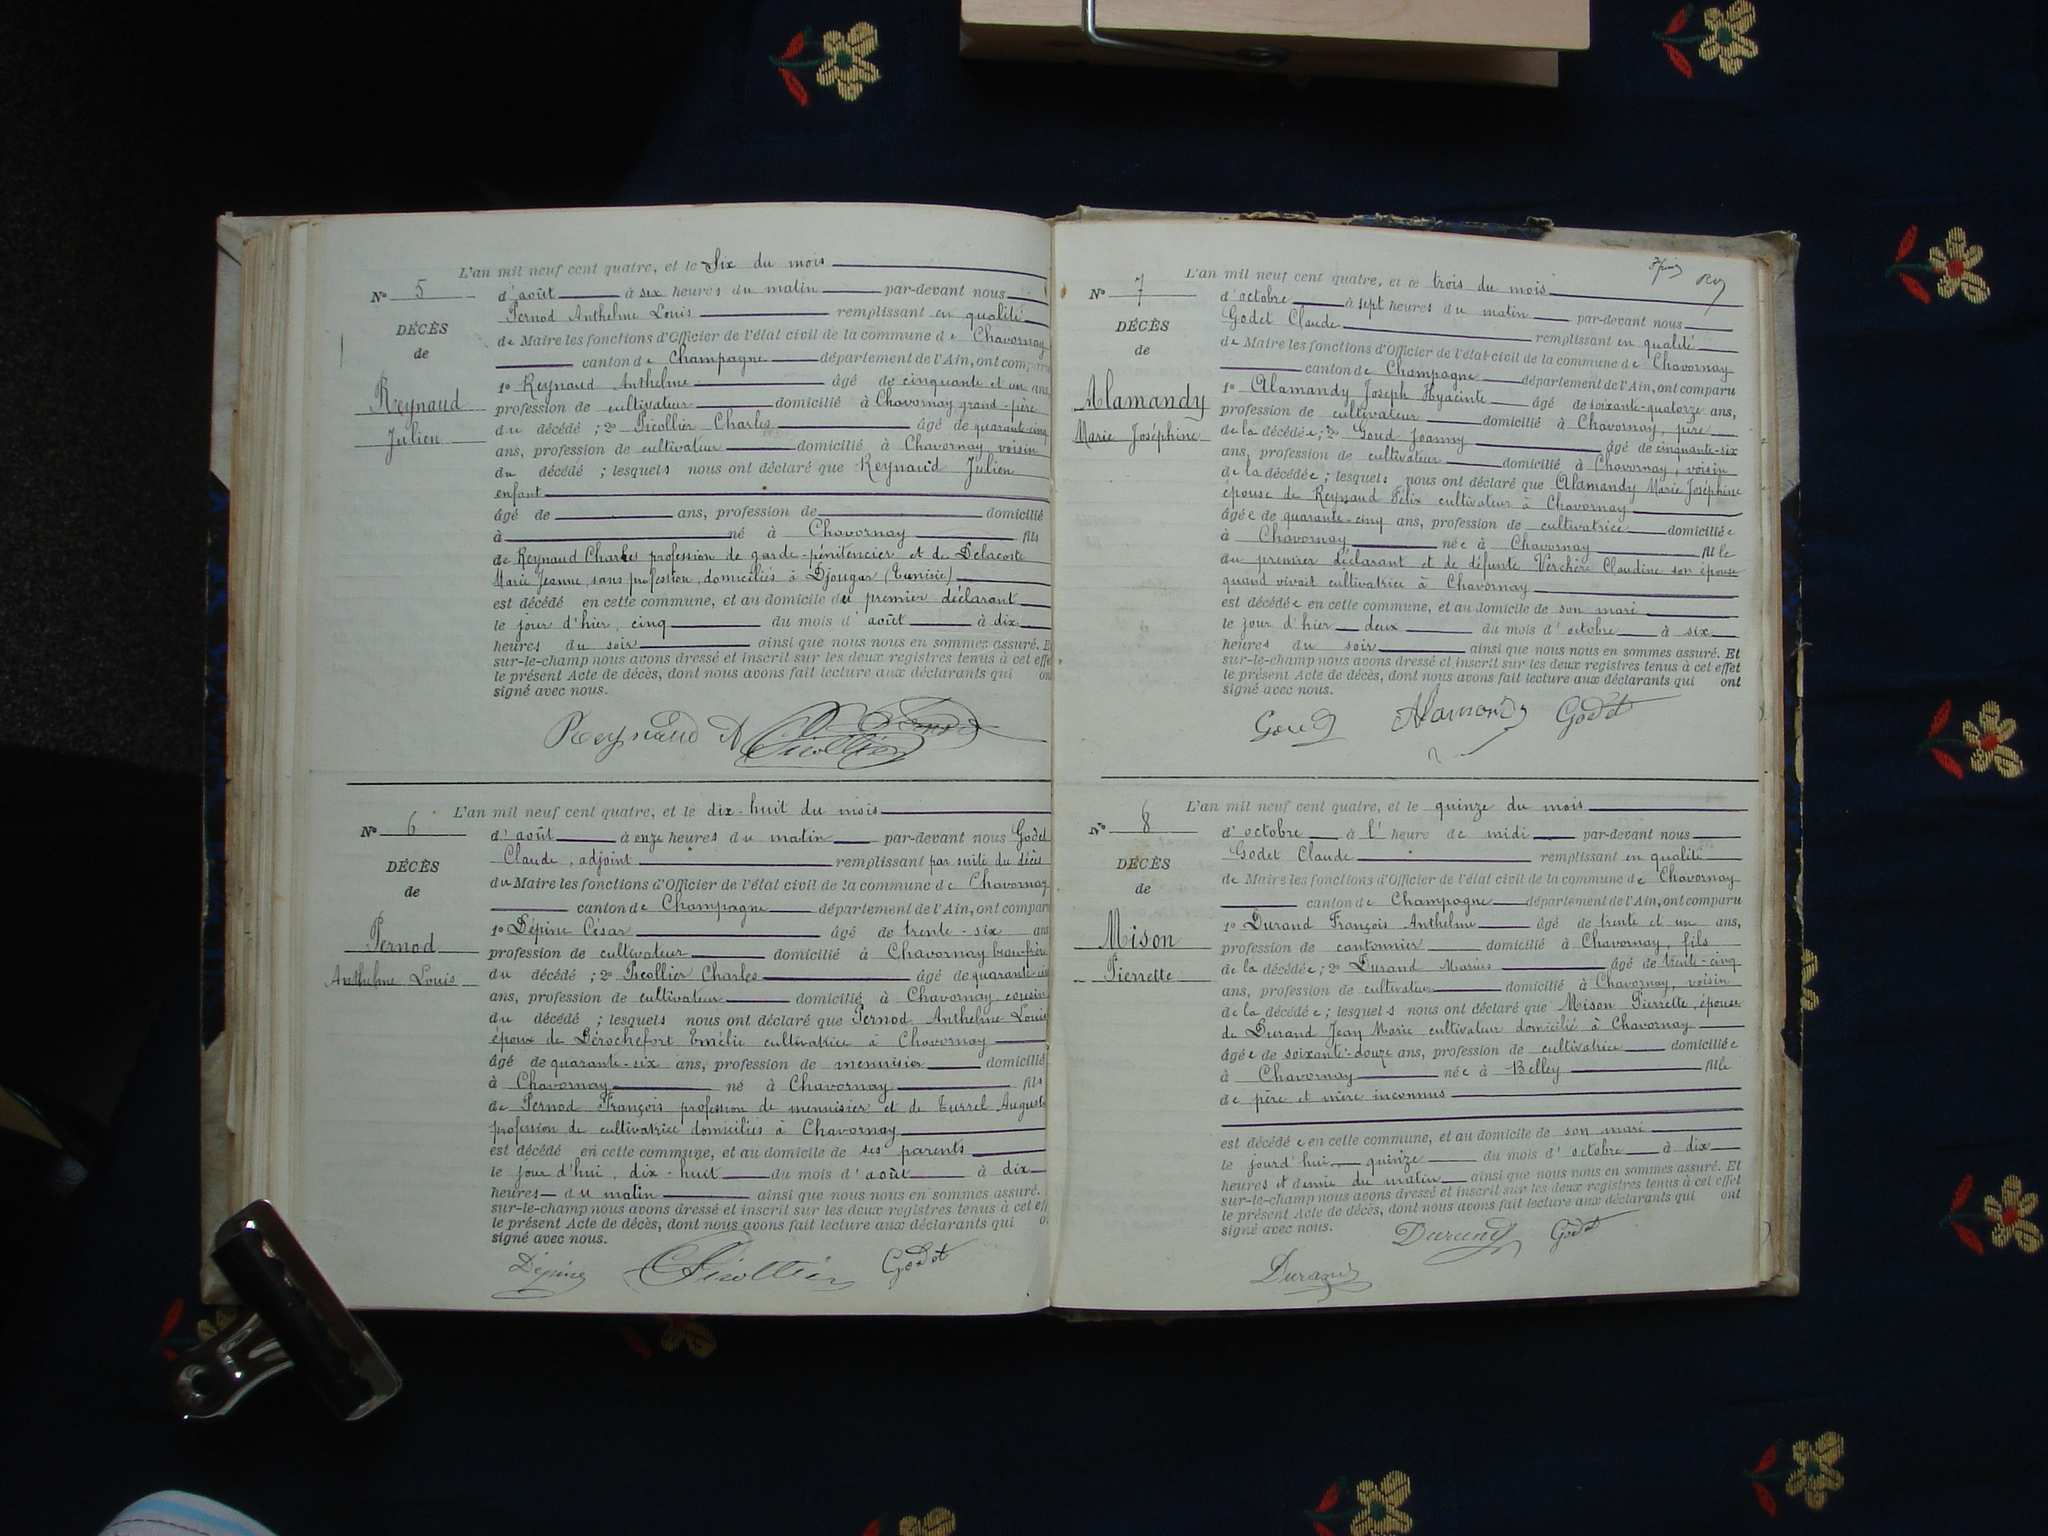 L'an mil neuf cent quatre, et le Six du mois
N° 5
d'août à six heures du matin par-devant nous
Pernod Anthelme Louis remplissant en qualité
DÉCÈS
de Maire les fonctions d'Officier de l'état civil de la commune de Chavornay
de
canton de Champagne département de l'Ain, ont comparu
Reynaud
Julien
1° Reynaud Anthelme âgé de cinquante et un ans,
profession de cultivateur domicilié à Chavornay grand-père
du décédé ; 2° Picollier Charles âgé de quarante-cinq
ans, profession de cultivateur domicilié à Chavornay voisin
du décédé ; lesquels nous ont déclaré que Reynaud Julien
enfant
âgé de ans, profession de domicilié
à né à Chavornay fils
de Reynaud Charles profession de garde-pénitencier et de Delacoste
Marie Jeanne, sans profession, domiciliés à Djougar (Tunisie)
est décédé en cette commune, et au domicile du premier déclarant
le jour d'hier, cinq du mois d'août à dix
heures du soir ainsi que nous nous en sommes assuré. E
sur-le-champ nous avons dressé et inscrit sur les deux registres tenus à cet effe
le présent Acte de décès, dont nous avons fait lecture aux déclarants qui on
signé avec nous.
Reynaud A Picollier Pernod
L'an mil neuf cent quatre, et le dix-huit du mois
N° 6
d'août à onze heures du matin par-devant nous Godet
Claude, adjoint remplissant par suite du décès
DÉCÈS
du Maire les fonctions d'Officier de l'état civil de la commune de Chavornay
de
canton de Champagne département de l'Ain, ont comparu
Pernod
Anthelme Louis
1° Dépine César âgé de trente-six ans
profession de cultivateur domicilié à Chavornay beau-frère
du décédé ; 2° Picollier Charles âgé de quarante-six
ans, profession de cultivateur domicilié à Chavornay cousin
du décédé ; lesquels nous ont déclaré que Pernod Anthelme Louis
époux de Dérochefort Emélie cultivatrice à Chavornay
âgé de quarante-six ans, profession de menuisier domicilié
à Chavornay né à Chavornay fils
de Pernod François profession de menuisier et de Turrel August
profession de cultivatrice domiciliés à Chavornay
est décédé en cette commune, et au domicile de ses parents
le jour d'hui, dix-huit du mois d'août à dix
heures du matin ainsi que nous nous en sommes assuré.
sur-le-champ nous avons dressé et inscrit sur les deux registres tenus à cet eff
le présent Acte de décès, dont nous avons fait lecture aux déclarants qui o
signé avec nous.
Dépine Picollier Godet
L'an mil neuf cent quatre, et le trois du mois
N° 7
d'octobre à sept heures du matin par-devant nous
Godet Claude remplissant en qualité
DÉCÈS
de Maire les fonctions d'Officier de l'état civil de la commune de Chavornay
de
canton de Champagne département de l'Ain, ont comparu
Alamandy
Marie Joséphine
1° Alamandy Joseph Hyacinte âgé de soixante-quatorze ans,
profession de cultivateur domicilié à Chavornay, père
de la décédée ; 2° Goud Joanny âgé de cinquante-six
ans, profession de cultivateur domicilié à Chavornay, voisin
de la décédée ; lesquels nous ont déclaré que Alamandy Marie Joséphine
épouse de Reynaud Félix cultivateur à Chavornay
âgée de quarante-cinq ans, profession de cultivatrice domiciliée
à Chavornay née à Chavornay fille
du premier déclarant et de défunte Verchère Claudine son épouse
quand vivait cultivatrice à Chavornay
est décédée en cette commune, et au domicile de son mari
le jour d'hier deux du mois d'octobre à six
heures du soir ainsi que nous nous en sommes assuré. Et
sur-le-champ nous avons dressé et inscrit sur les deux registres tenus à cet effet
le présent Acte de décès, dont nous avons fait lecture aux déclarants qui ont
signé avec nous.
Goud Alamandy Godet
L'an mil neuf cent quatre, et le quinze du mois
N° 8
d'octobre à l'heure de midi par-devant nous
Godet Claude remplissant en qualité
DÉCÈS
de Maire les fonctions d'Officier de l'état civil de la commune de Chavornay
de
canton de Champagne département de l'Ain, ont comparu
Mison
Pierrette
1° Durand François Anthelme âgé de trente et un ans,
profession de cantonnier domicilié à Chavornay, fils
de la décédée ; 2° Durand Marius âgé de trente-cinq
ans, profession de cultivateur domicilié à Chavornay, voisin
de la décédée ; lesquels nous ont déclaré que Mison Pierrette, épouse
de Durand Jean Marie cultivateur domicilié à Chavornay
âgée de soixante-douze ans, profession de cultivatrice domiciliée
à Chavornay née à Belley fille
de père et mère inconnus
est décédée en cette commune, et au domicile de son mari
le jourd'hui quinze du mois d'octobre à dix
heures et demie du matin ainsi que nous nous en sommes assuré. Et
sur-le-champ nous avons dressé et inscrit sur les deux registres tenus à cet effet
le présent Acte de décès, dont nous avons fait lecture aux déclarants qui ont
signé avec nous.
Durand Godet
Durand